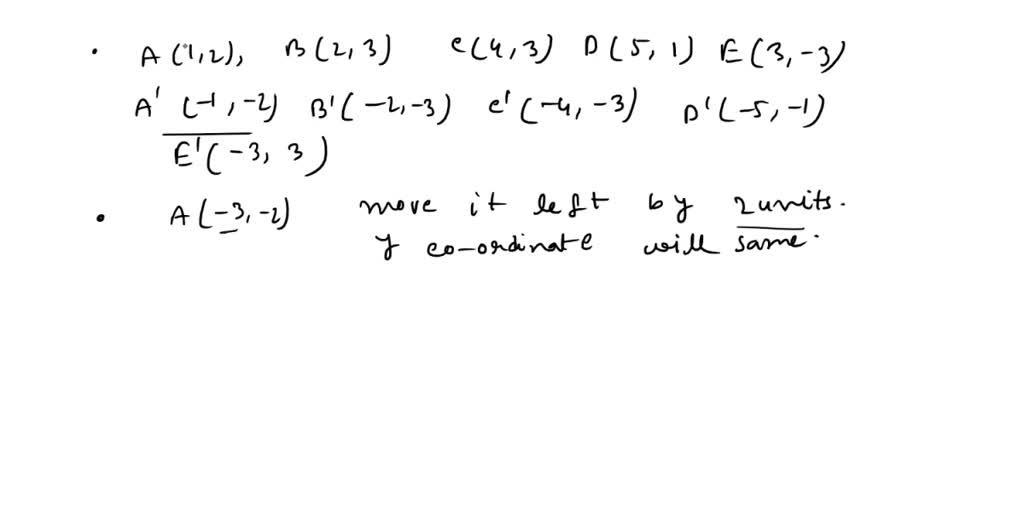 • A (1,2), B (2, 3) C (4, 3) D (5, 1) E (3, -3)
A' (-1, -2) B' (-2, -3) C' (-4, -3) D' (-5, -1)
E' (-3, 3)
• A (-3, -2) move it left by 2 units.
y co-ordinate will same.